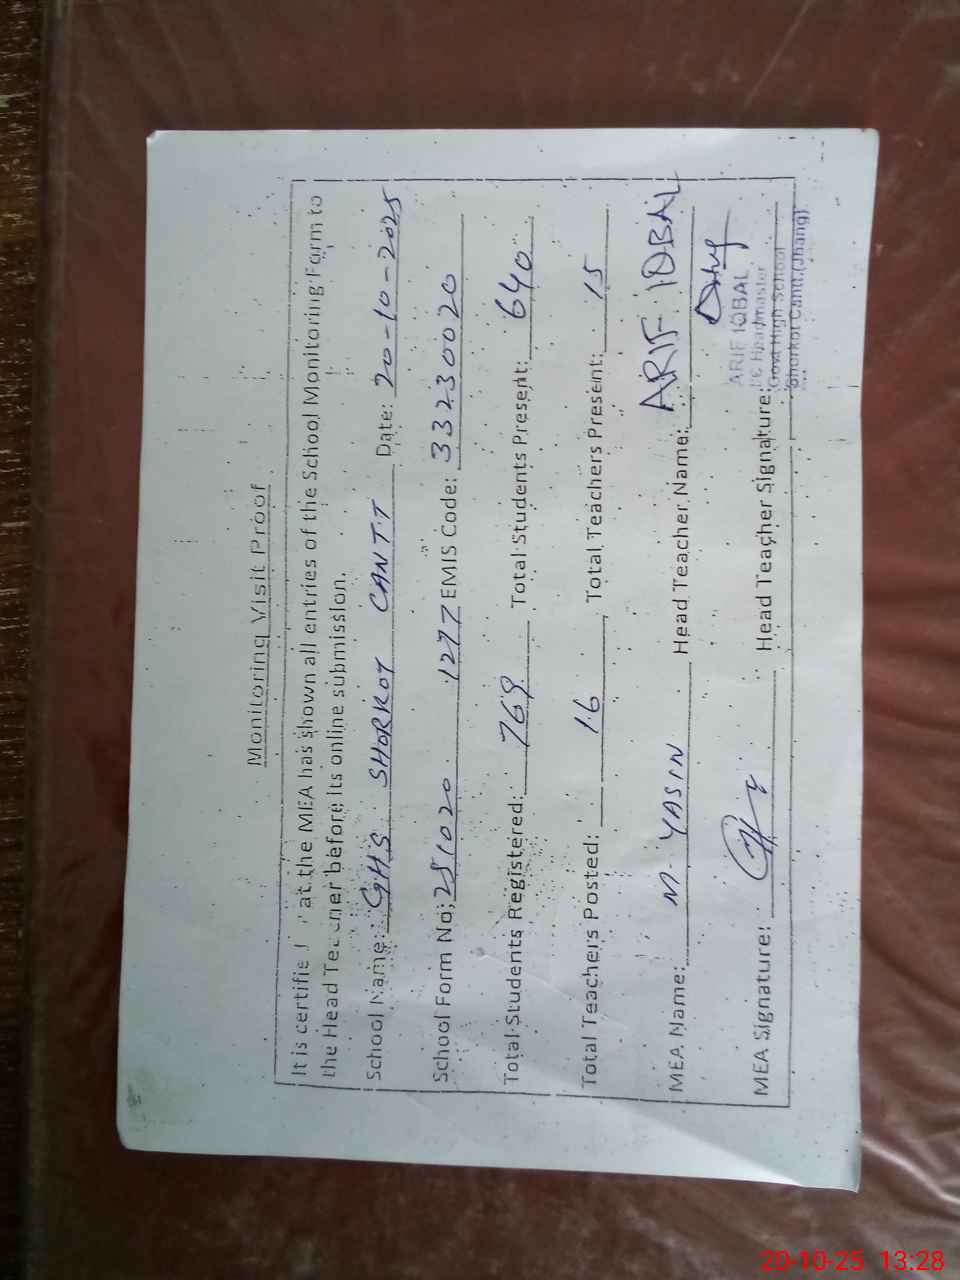 Monitoring Visit Proof
It is certified that the MEA has shown all entries of the School Monitoring Form to
the Head Teacher before its online submission.
School Name: GHS SHORKOT CANTT Date: 20-10-2025
School Form No: 251020 1277 EMIS Code: 33230020
Total Students Registered: 769 Total Students Present: 640
Total Teachers Posted: 16 Total Teachers Present: 15
MEA Name: M. YASIN Head Teacher Name: ARIF IQBAL
MEA Signature: Head Teacher Signature:
ARIF IQBAL
Headmaster
Govt High School
Shorkot Cantt.(Jhang)
20-10-25 13:28